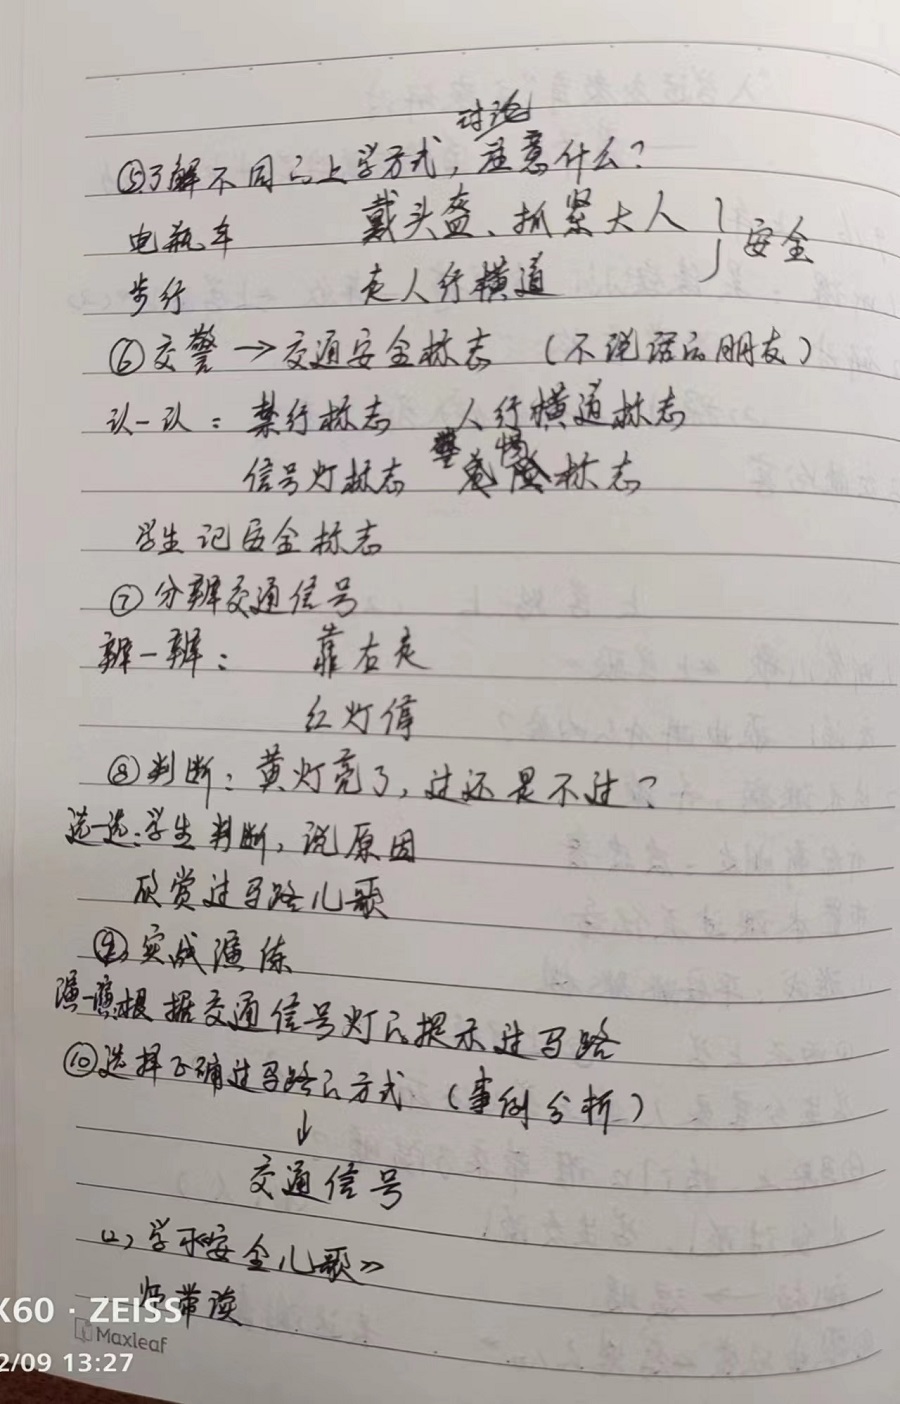 讨论
⑤了解不同的上学方式，注意什么？
电瓶车 戴头盔、抓紧大人 } 安全
步行 走人行横道
⑥交警→交通安全标志（不说话的朋友）
认一认：禁行标志 人行横道标志
信号灯标志 标志
学生记安全标志
⑦分辨交通信号
辨一辨： 靠右走
红灯停
⑧判断：黄灯亮了，过还是不过？
选一选：学生判断，说原因
欣赏过马路儿歌
⑨实战演练
演一演：根据交通信号灯的提示过马路
⑩选择正确过马路的方式（事例分析）
↓
交通信号
学习《安全儿歌》
师带读
X60 · ZEISS
Maxleaf
2/09 13:27